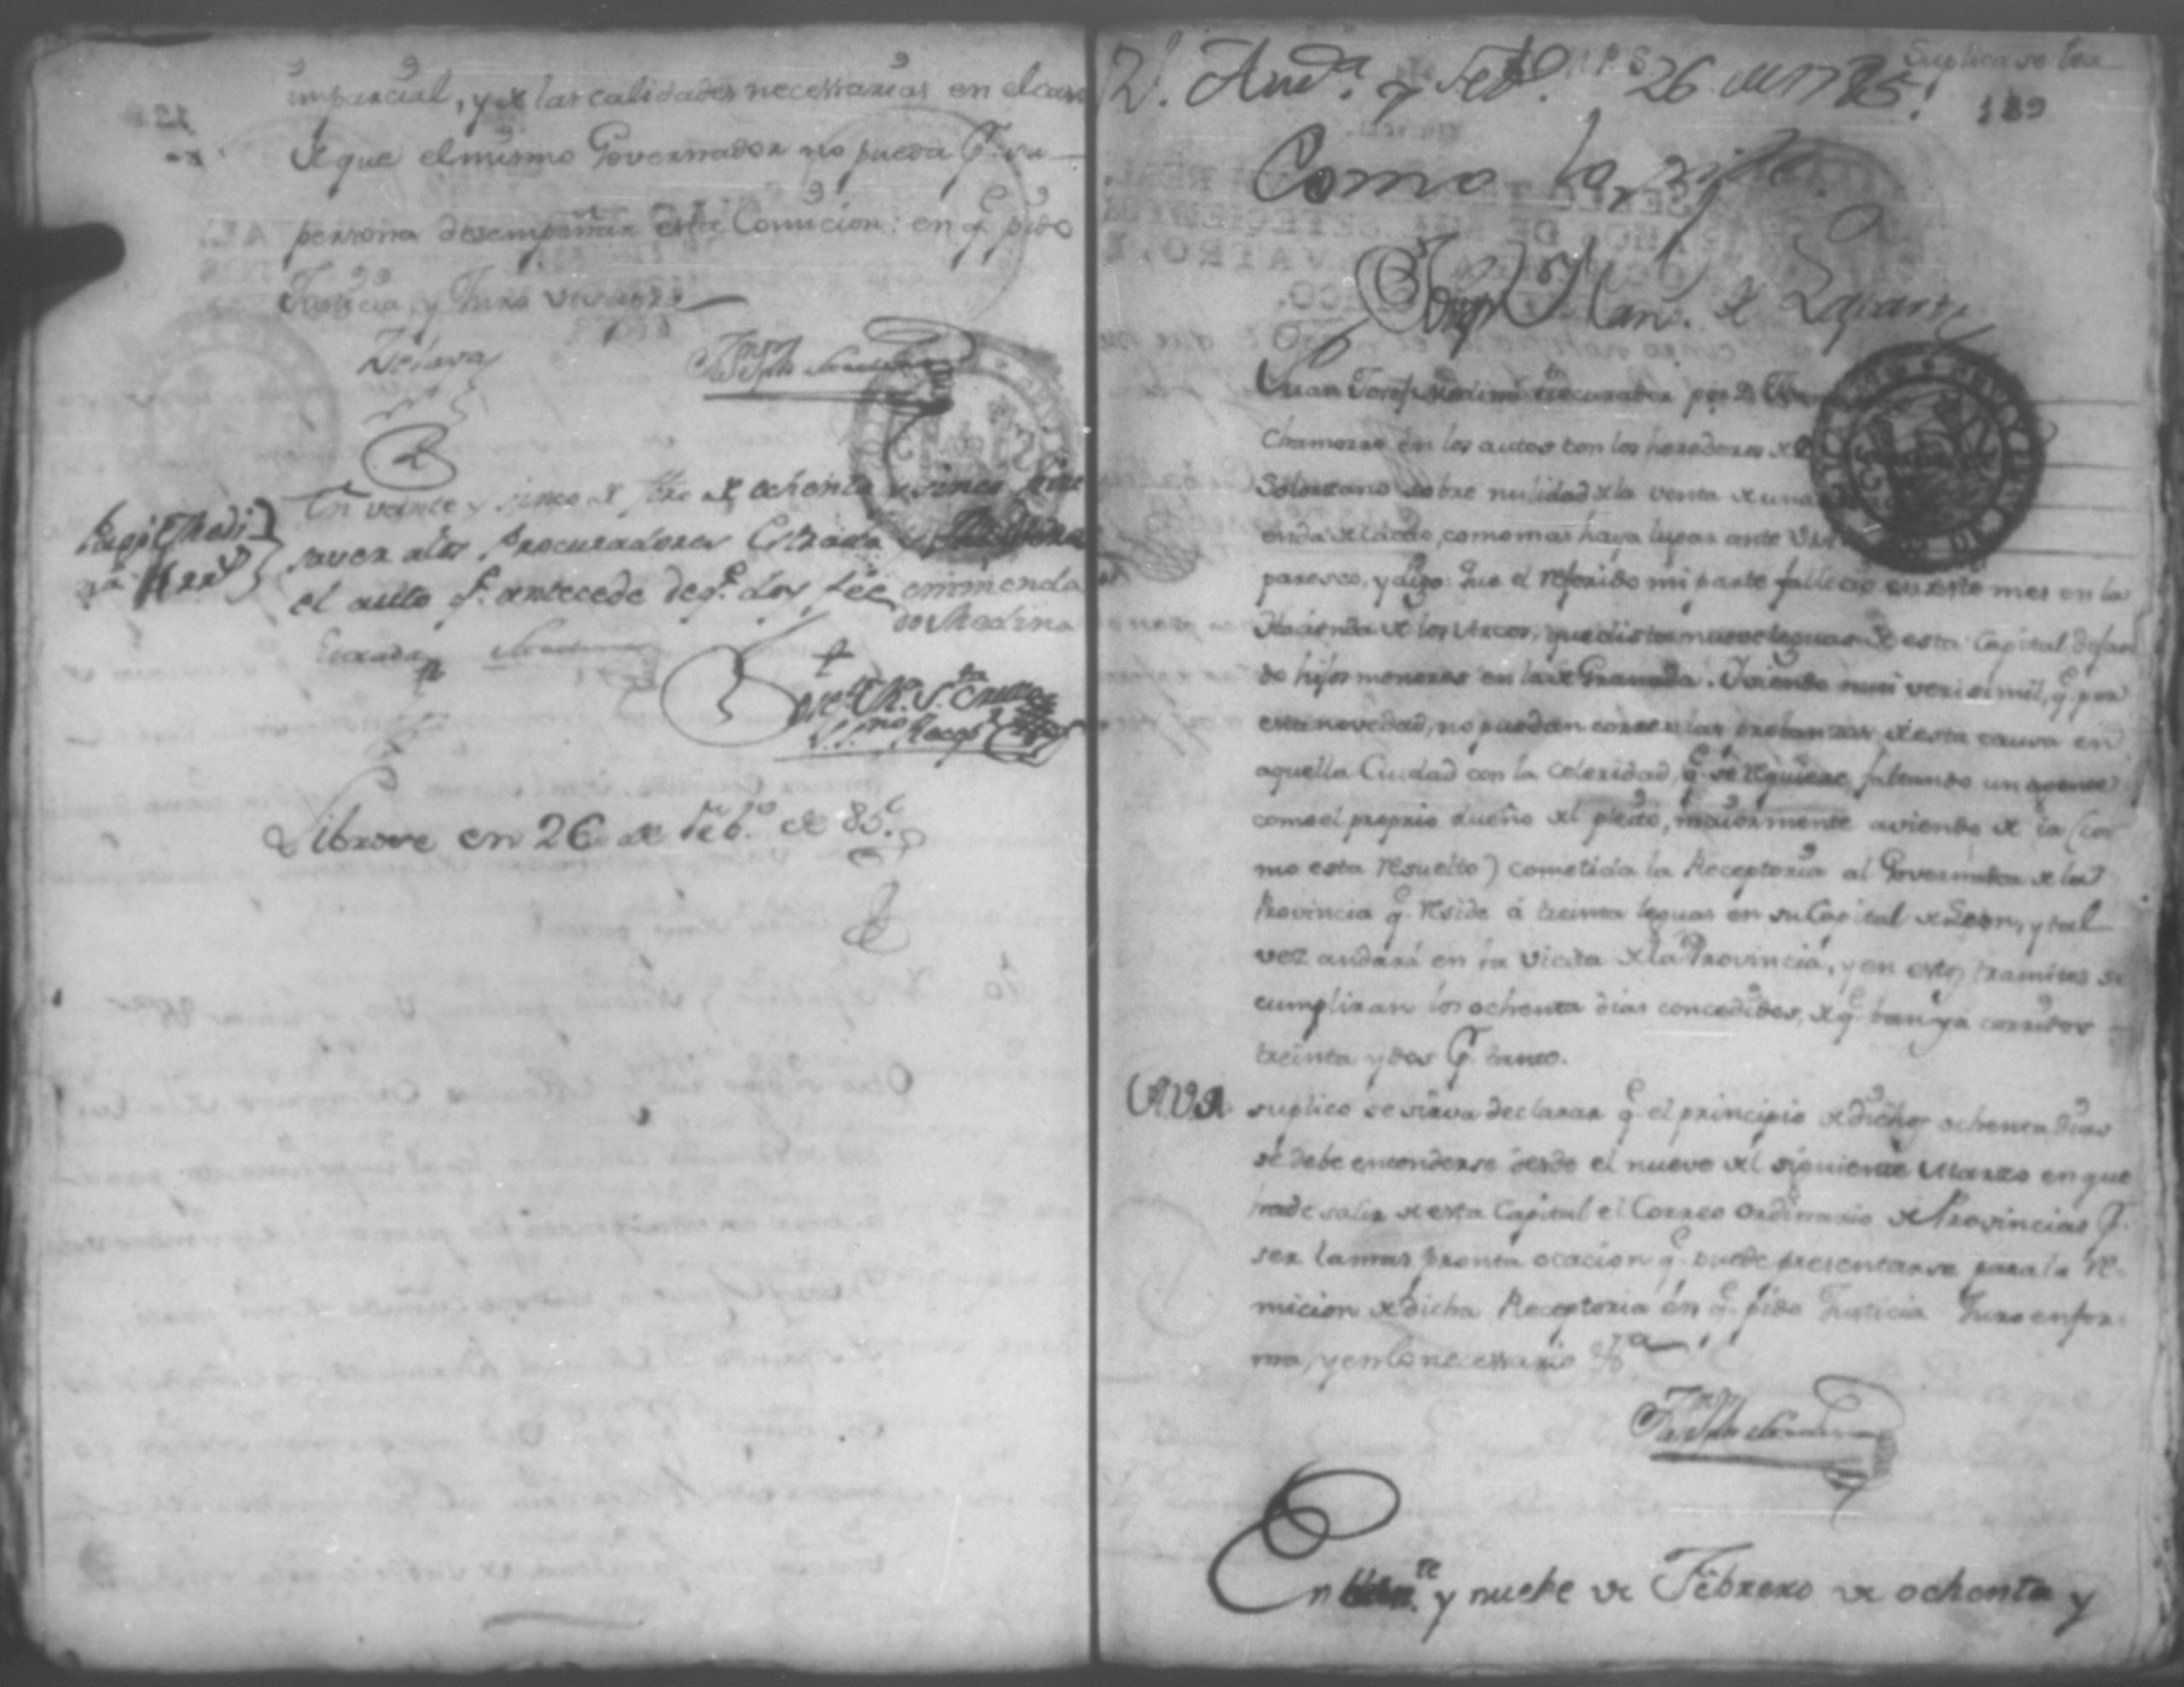 imparcial, y de las calidades necessarias en el caso
de que el mismo Governador no pueda p.r su
persona desempeñar esta Comicion: en q.e pido
Justicia, y Juro
Zelaya
En veinte y sinco de de ochenta y sinco hice
saver a los Procuradores Estrada y Medina
el auto q.e antecede de q.e doy fee enmenda
do Medina
Estrada
S.ta Cruz
Rec.r
Librose en 26 de Feb.o de 85.
Suplica se
R.l Aud.a y Feb.o 26 de 1785.
189
Como lo pide.
Juan Josef Medina Procurador por D.
Chamorro en los autos con los herederos de
Solorzano sobre nulidad de la venta de una
enda de cacao, como mas haya lugar ante
paresco, y digo: Que el referido mi parte fallecio en este mes en la
Hacienda de los Arcos, que dista nueve leguas de esta Capital dejan
do hijos menores en la de Granada. Y siendo mui verisimil, q.e por
esta novedad, no puedan correr las probanzas de esta causa en
aquella Ciudad con la celeridad, q.e se requiere, faltando un agente
como el proprio dueño del pleito, maiormente aviendo de ia (co
mo esta resuelto) cometida la Receptoria al Governador de la
Provincia q.e reside á treinta leguas en su Capital de Leon, y tal
vez andará en la vicita de la Provincia, y en estos tramites se
cumpliran los ochenta dias concedidos, de q.e han ya corridos
treinta y dos P.r tanto.
A V.A. suplico se sirva declarar q.e el principio de dichos ochenta dias
se debe entenderse desde el nueve del siguiente Marzo en que
ha de salir de esta Capital el Correo Ordinario de Provincias p.r
ser la mas pronta ocacion q.e puede presentarse para la re
micion de dicha Receptoria en q.e pido Justicia Juro en for
ma, y en lo necessario &.a
En y nuebe de Febrero de ochenta y